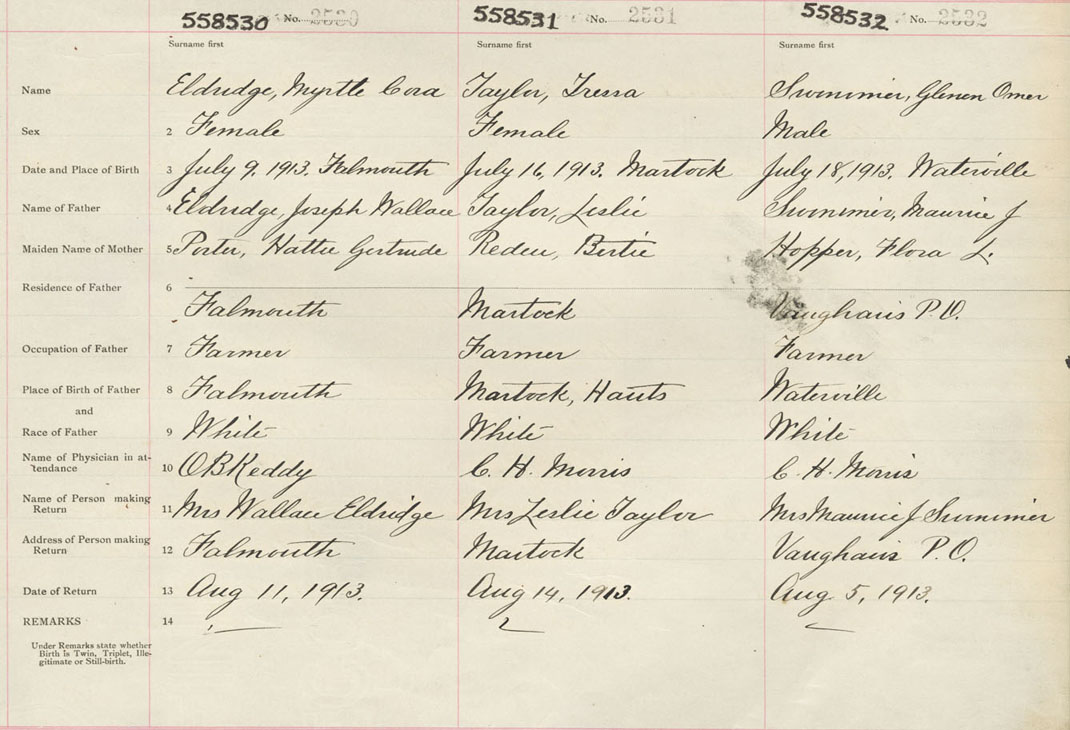 558530 No. 2530 558531 No. 2531 558532 No. 2532
Surname first Surname first Surname first
Name Eldridge, Myrtle Cora Taylor, Tressa Swinimer, Glenen Omer
Sex 2 Female Female Male
Date and Place of Birth 3 July 9, 1913. Falmouth July 16, 1913. Martock July 18, 1913. Waterville
Name of Father 4 Eldridge, Joseph Wallace Taylor, Leslie Swinimer, Maurice J
Maiden Name of Mother 5 Porter, Hattie Gertrude Redden, Bertie Hopper, Flora L.
Residence of Father 6
Falmouth Martock Vaughans P.O.
Occupation of Father 7 Farmer Farmer Farmer
Place of Birth of Father 8 Falmouth Martock, Hants Waterville
and
Race of Father 9 White White White
Name of Physician in at-
tendance 10 O B Keddy C. H. Morris C. H. Morris
Name of Person making
Return 11 Mrs Wallace Eldridge Mrs Leslie Taylor Mrs Maurice J Swinimer
Address of Person making
Return 12 Falmouth Martock Vaughans P.O.
Date of Return 13 Aug 11, 1913. Aug 14, 1913. Aug 5, 1913.
REMARKS 14
Under Remarks state whether
Birth is Twin, Triplet, Ille-
gitimate or Still-birth.